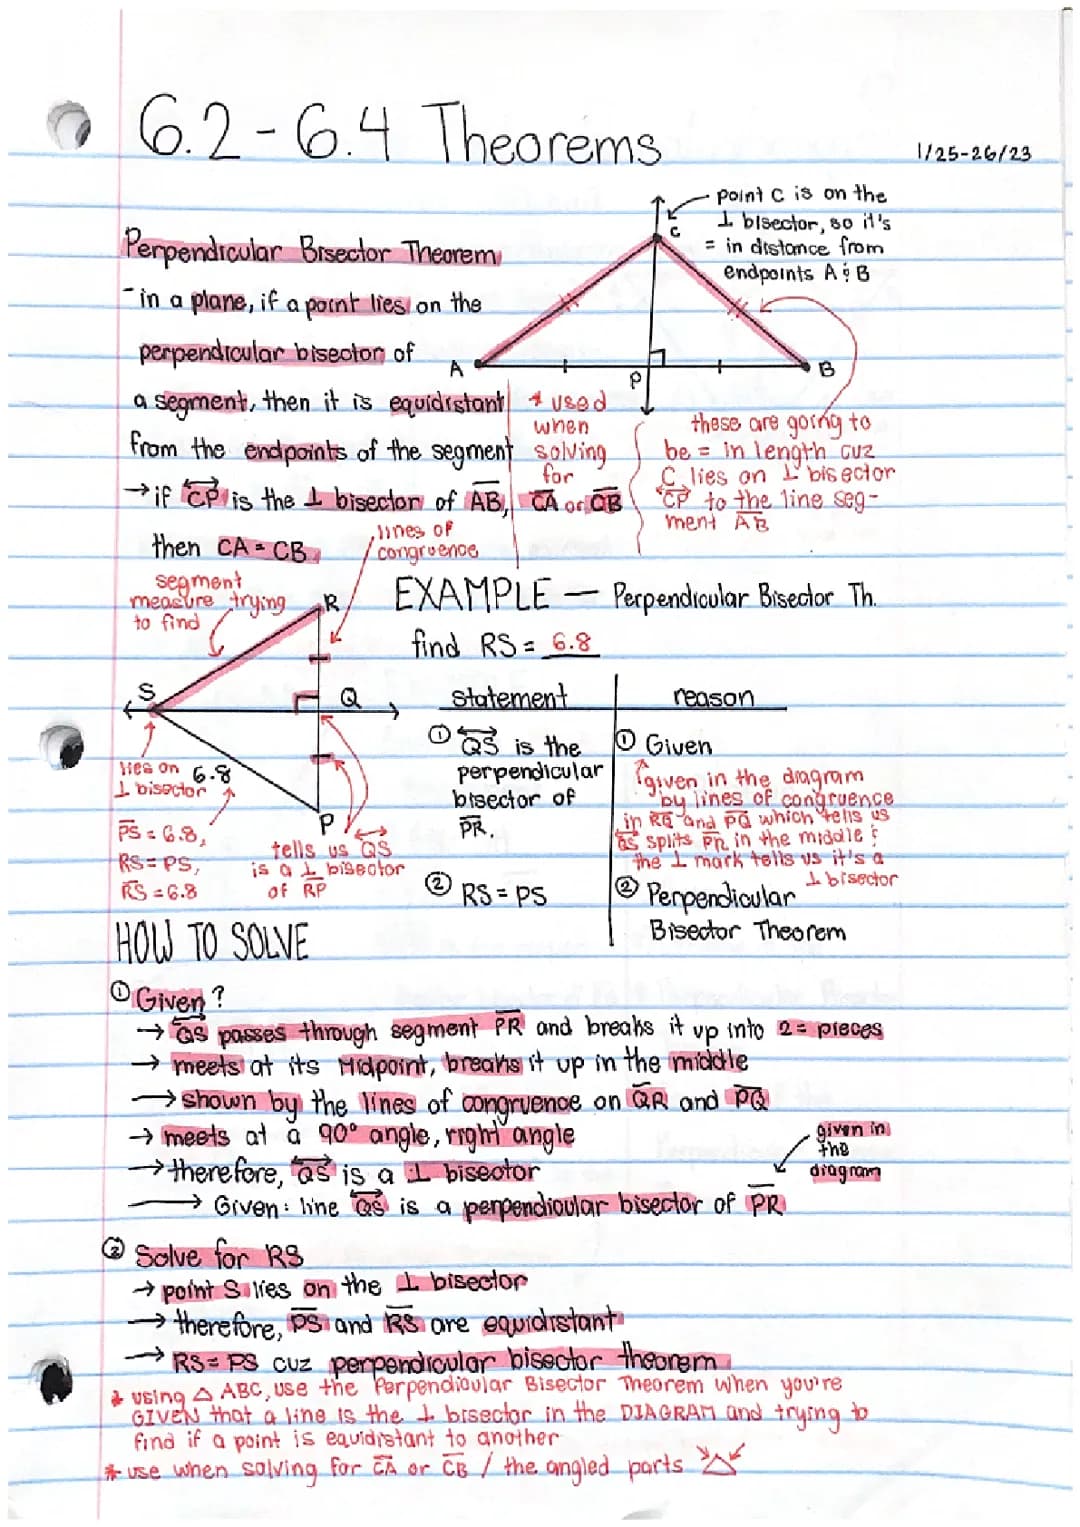 6.2-6.4 Theorems
1/25-26/23
point C is on the
⊥ bisector, so it's
= in distance from
endpoints A & B
C
A
P
B
Perpendicular Bisector Theorem
- in a plane, if a point lies on the
perpendicular bisector of
a segment, then it is equidistant
from the endpoints of the segment
→ if CP is the ⊥ bisector of AB,
then CA = CB
* used
when
solving
for
CA or CB
these are going to
be = in length cuz
C lies on ⊥ bisector
CP to the line seg-
ment AB
lines of
congruence
segment
measure trying
to find
R
S
Q
P
6.8
lies on
⊥ bisector
PS = 6.8,
RS = PS,
RS = 6.8
tells us QS
is a ⊥ bisector
of RP
EXAMPLE — Perpendicular Bisector Th.
find RS = 6.8
statement reason
① QS is the
perpendicular
bisector of
PR.
① Given
given in the diagram
by lines of congruence
in RQ and PQ which tells us
QS splits PR in the middle &
the ⊥ mark tells us it's a
⊥ bisector
② RS = PS
② Perpendicular
Bisector Theorem
HOW TO SOLVE
① Given?
→ QS passes through segment PR and breaks it up into 2 = pieces
→ meets at its Midpoint, breaks it up in the middle
→ shown by the lines of congruence on QR and PQ
→ meets at a 90° angle, right angle
→ therefore, QS is a ⊥ bisector
→ Given: line QS is a perpendicular bisector of PR
given in
the
diagram
② Solve for RS
→ point S lies on the ⊥ bisector
→ therefore, PS and RS are equidistant
→ RS = PS cuz perpendicular bisector theorem
* using △ ABC, use the Perpendicular Bisector Theorem when you're
GIVEN that a line is the ⊥ bisector in the DIAGRAM and trying to
find if a point is equidistant to another
* use when solving for CA or CB / the angled parts